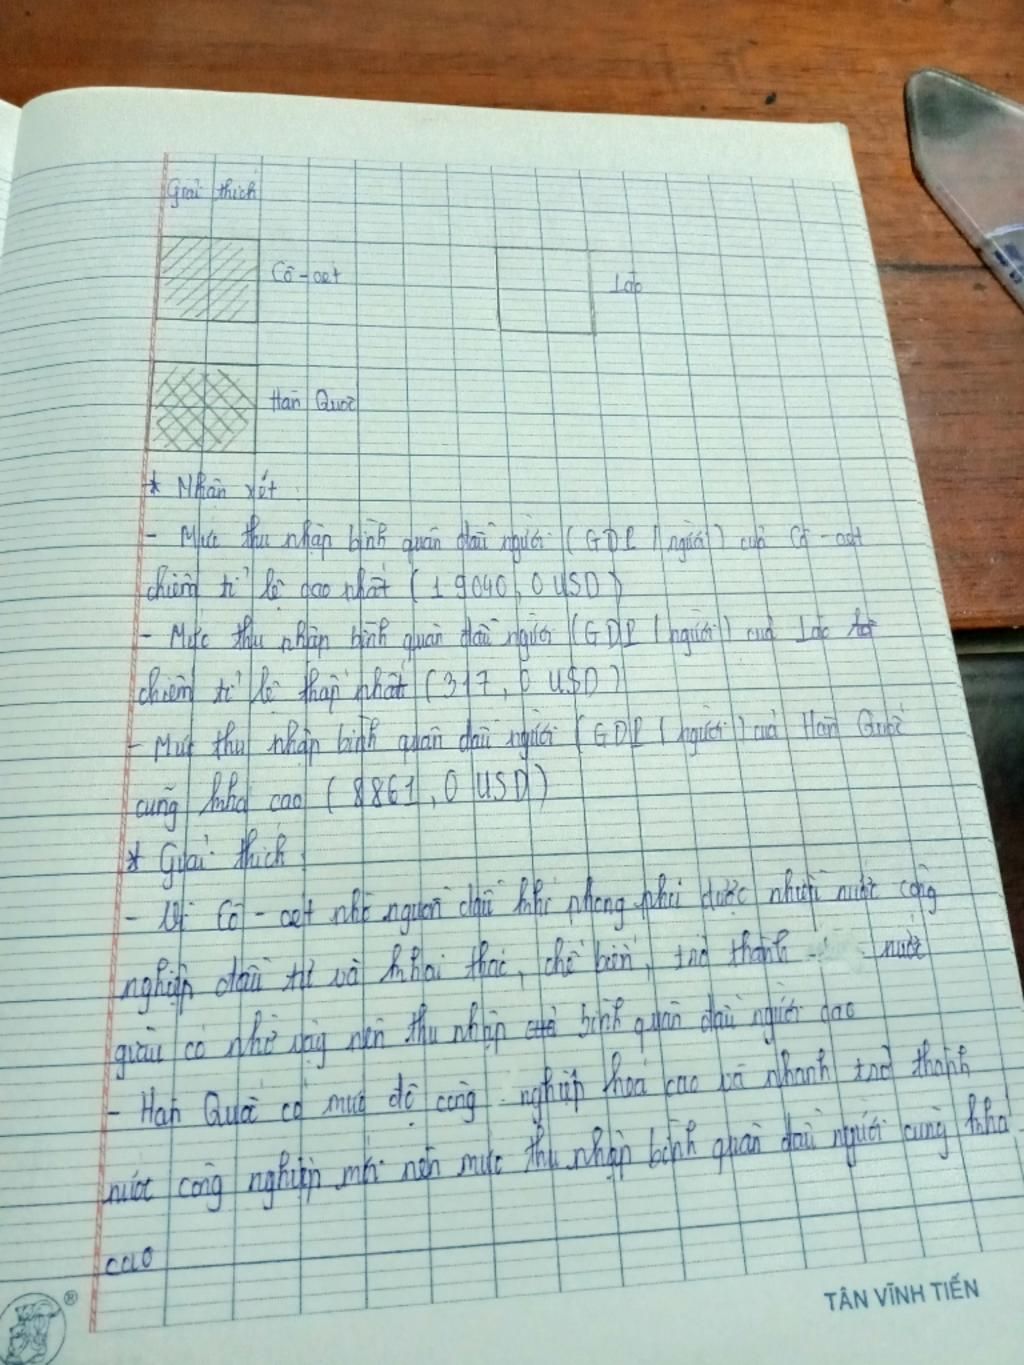 Giải thích
Cô-oet
Lào
Hàn Quốc
* Nhận xét
- Mức thu nhập bình quân đầu người (GDP/người) của Cô-oet
chiếm tỉ lệ cao nhất (19040,0 USD)
- Mức thu nhập bình quân đầu người (GDP/người) của Lào
chiếm tỉ lệ thấp nhất (317,0 USD)
- Mức thu nhập bình quân đầu người (GDP/người) của Hàn Quốc
cũng khá cao (8861,0 USD)
* Giải thích
- Vì Cô-oet nhờ nguồn dầu khí phong phú được nhiều nước công
nghiệp đầu tư và khai thác, chế biến, trở thành nước
giàu có nhờ vậy nên thu nhập bình quân đầu người cao
- Hàn Quốc có mức độ công nghiệp hoá cao và nhanh trở thành
nước công nghiệp mới nên mức thu nhập bình quân đầu người cũng khá
cao
TÂN VĨNH TIẾN
®